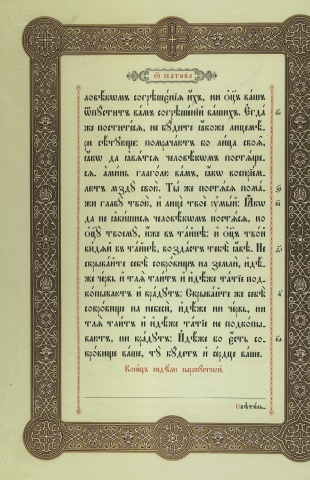 Ѿ матѳеа
ловѣкѡмъ согрѣшенїѧ ихъ, ни оц҃ъ вашъ
ѿпуститъ вамъ согрѣшенїй вашихъ. Егда
же поститесѧ, не будите ꙗкоже лицемѣ
ри сѣтующе: помрачаютъ бо лица своѧ,
ꙗкѡ да ꙗвѧтсѧ человѣкѡмъ постѧще
сѧ. аминь глаголю вамъ, ꙗкѡ воспрїем
лютъ мзду свою. Ты же постѧсѧ пома
жи главу твою, и лице твое умый: Ꙗкѡ
да не ꙗвишисѧ человѣкѡмъ постѧсѧ, но
оц҃у твоему, иже въ тайнѣ: и оц҃ъ твой
видѧй въ тайнѣ, воздастъ тебѣ ꙗвѣ. Не
скрывайте себѣ сокровищъ на земли, идѣ
же червь и тлѧ тлитъ и идѣже татїе под
копываютъ и крадутъ: Скрывайте же себѣ
сокровище на небеси, идѣже ни червь, ни
тлѧ тлитъ и идѣже татїе не подкопы
ваютъ, ни крадутъ: Идѣже бо есть со
кровище ваше, ту будетъ и сердце ваше.
Конецъ недѣли сыропустной.
Свѣтиль